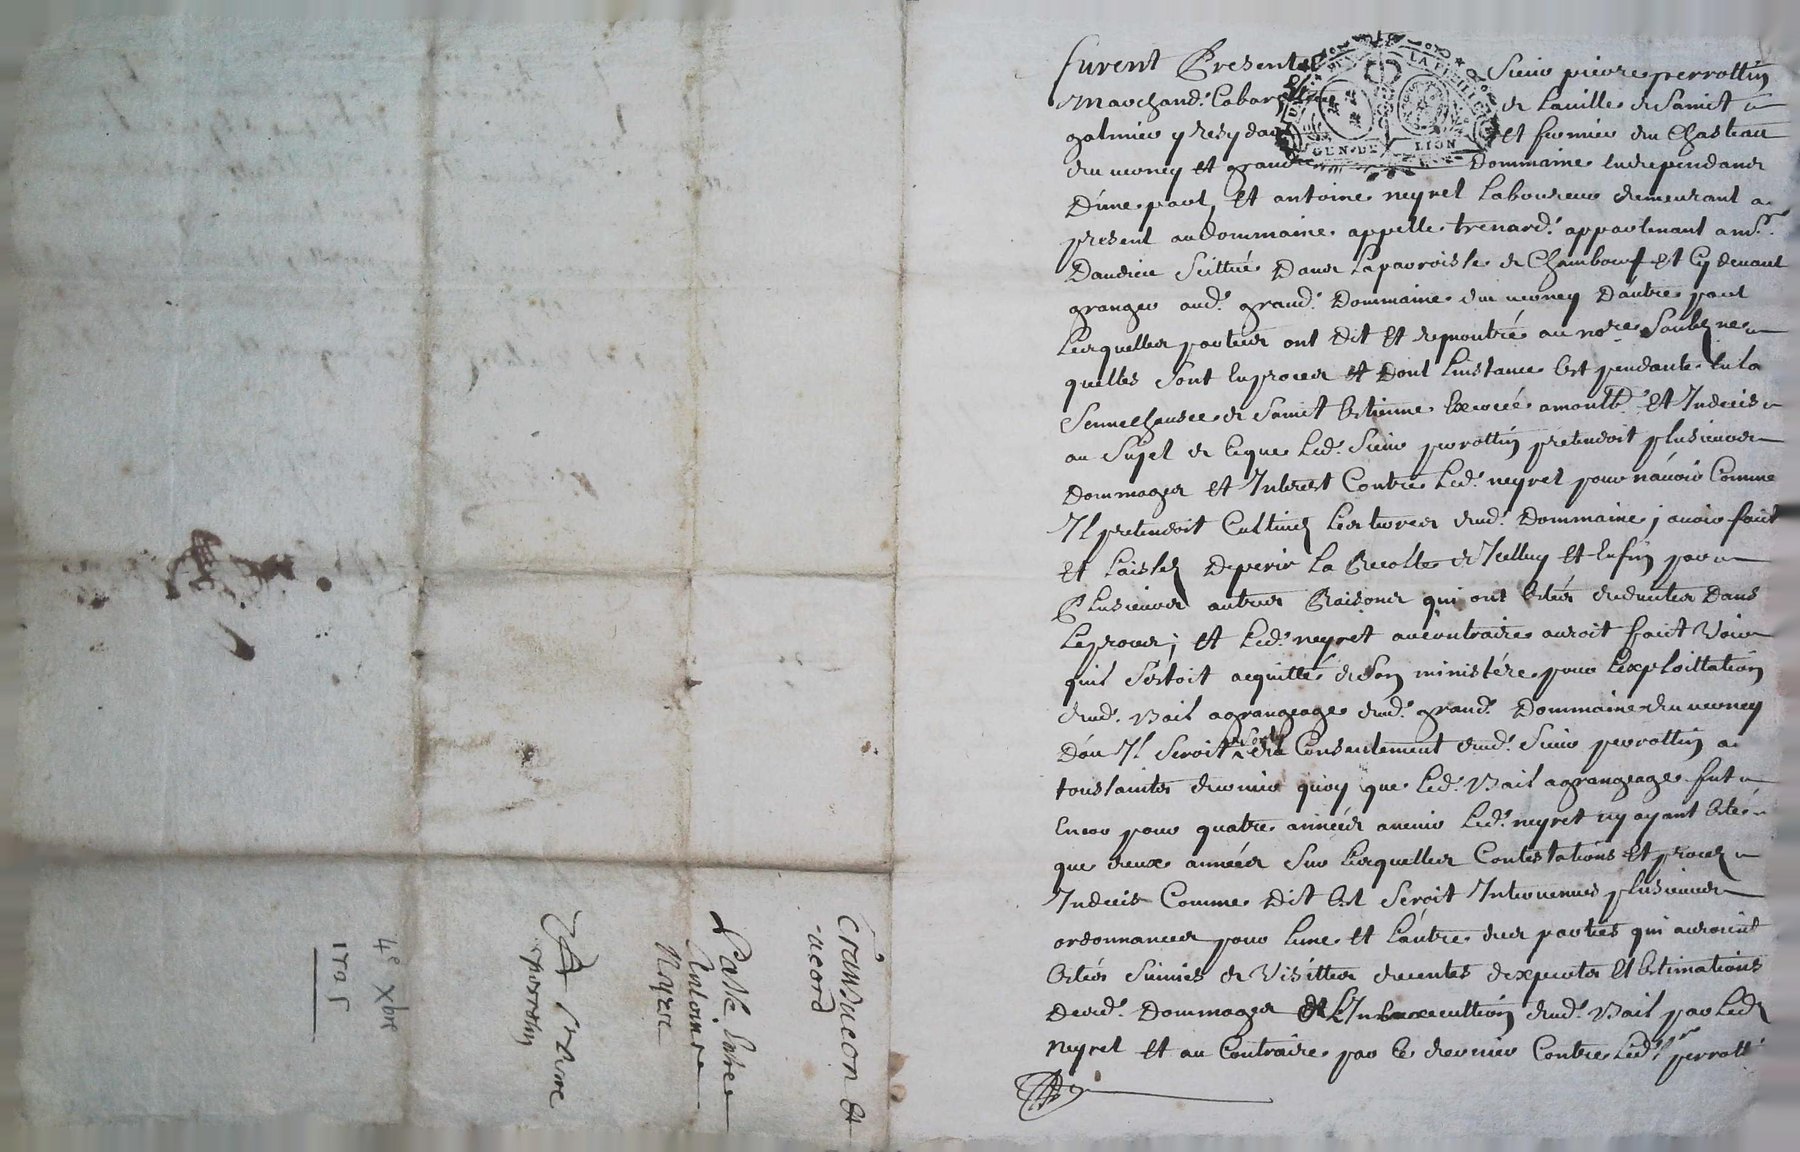 furent Presentz Sieur pierre perrottin
Marchand. Cabaretier de Lauille de Sainct
galmier y resydant et fermier du Chasteau
du verney et grand Dommaine en dependant
D'une part, et antoine neyret Laboureur demeurant a
present au Dommaine appellé trenard. appartenant a mr.
Dandieu Scittué Dans La parroisse de Chambœuf et Cy deuant
granger aud. grand. Dommaine du verney D'autre part
Lesquelles parties ont dit et remontré au nore. Soubzne
quelles Sont en proces et dont Linstance Est pendante en La
Sennechaussee de Sainct Estienne Exercée a montb. et Indecis
au Sujet de Ceque Led. Sieur perrottin pretendoit plusieurs
Dommages et Interest Contre Led. neyret pour n'auoir Comme
Il pretendoit Cultiué Les terres dud. Dommaine, auoir fait
et Laissé deperir La Recolte d'Icelluy et Enfin pour
Plusieurs autres Raisons qui ont Estés deduites Dans
Le proces; et Led. neyret au contraire auroit fait Voir
quil S'estoit acquitté de Son ministére pour L'exploittation
dud. Bail a grangeage dud. grand. Dommaine du verney
D'ou Il Seroit sorty du Consentement dud. Sieur perrottin a
toussaintes dernier quoy que Led. Bail a grangeage fut
Encor pour quatre années a venir Led. neyret ny ayant Esté
que deux années Sur Lesquelles Contestations et proces
Indecis Comme Dit Est Seroit Interuenues plusieurs
ordonnances pour L'une et L'autre des parties qui auroient
Estés Suiuies de Visittes d'experts et Estimations
Desd. Dommages et L'Inexecuttion dud. Bail par Led.
Neyret et au Contraire par Ce dernier Contre Led. Sr perrott
transaction et
acord
Passé Entre
Antoinne
Neyret
Et Pierre
perrotin
4e Xbre
1705